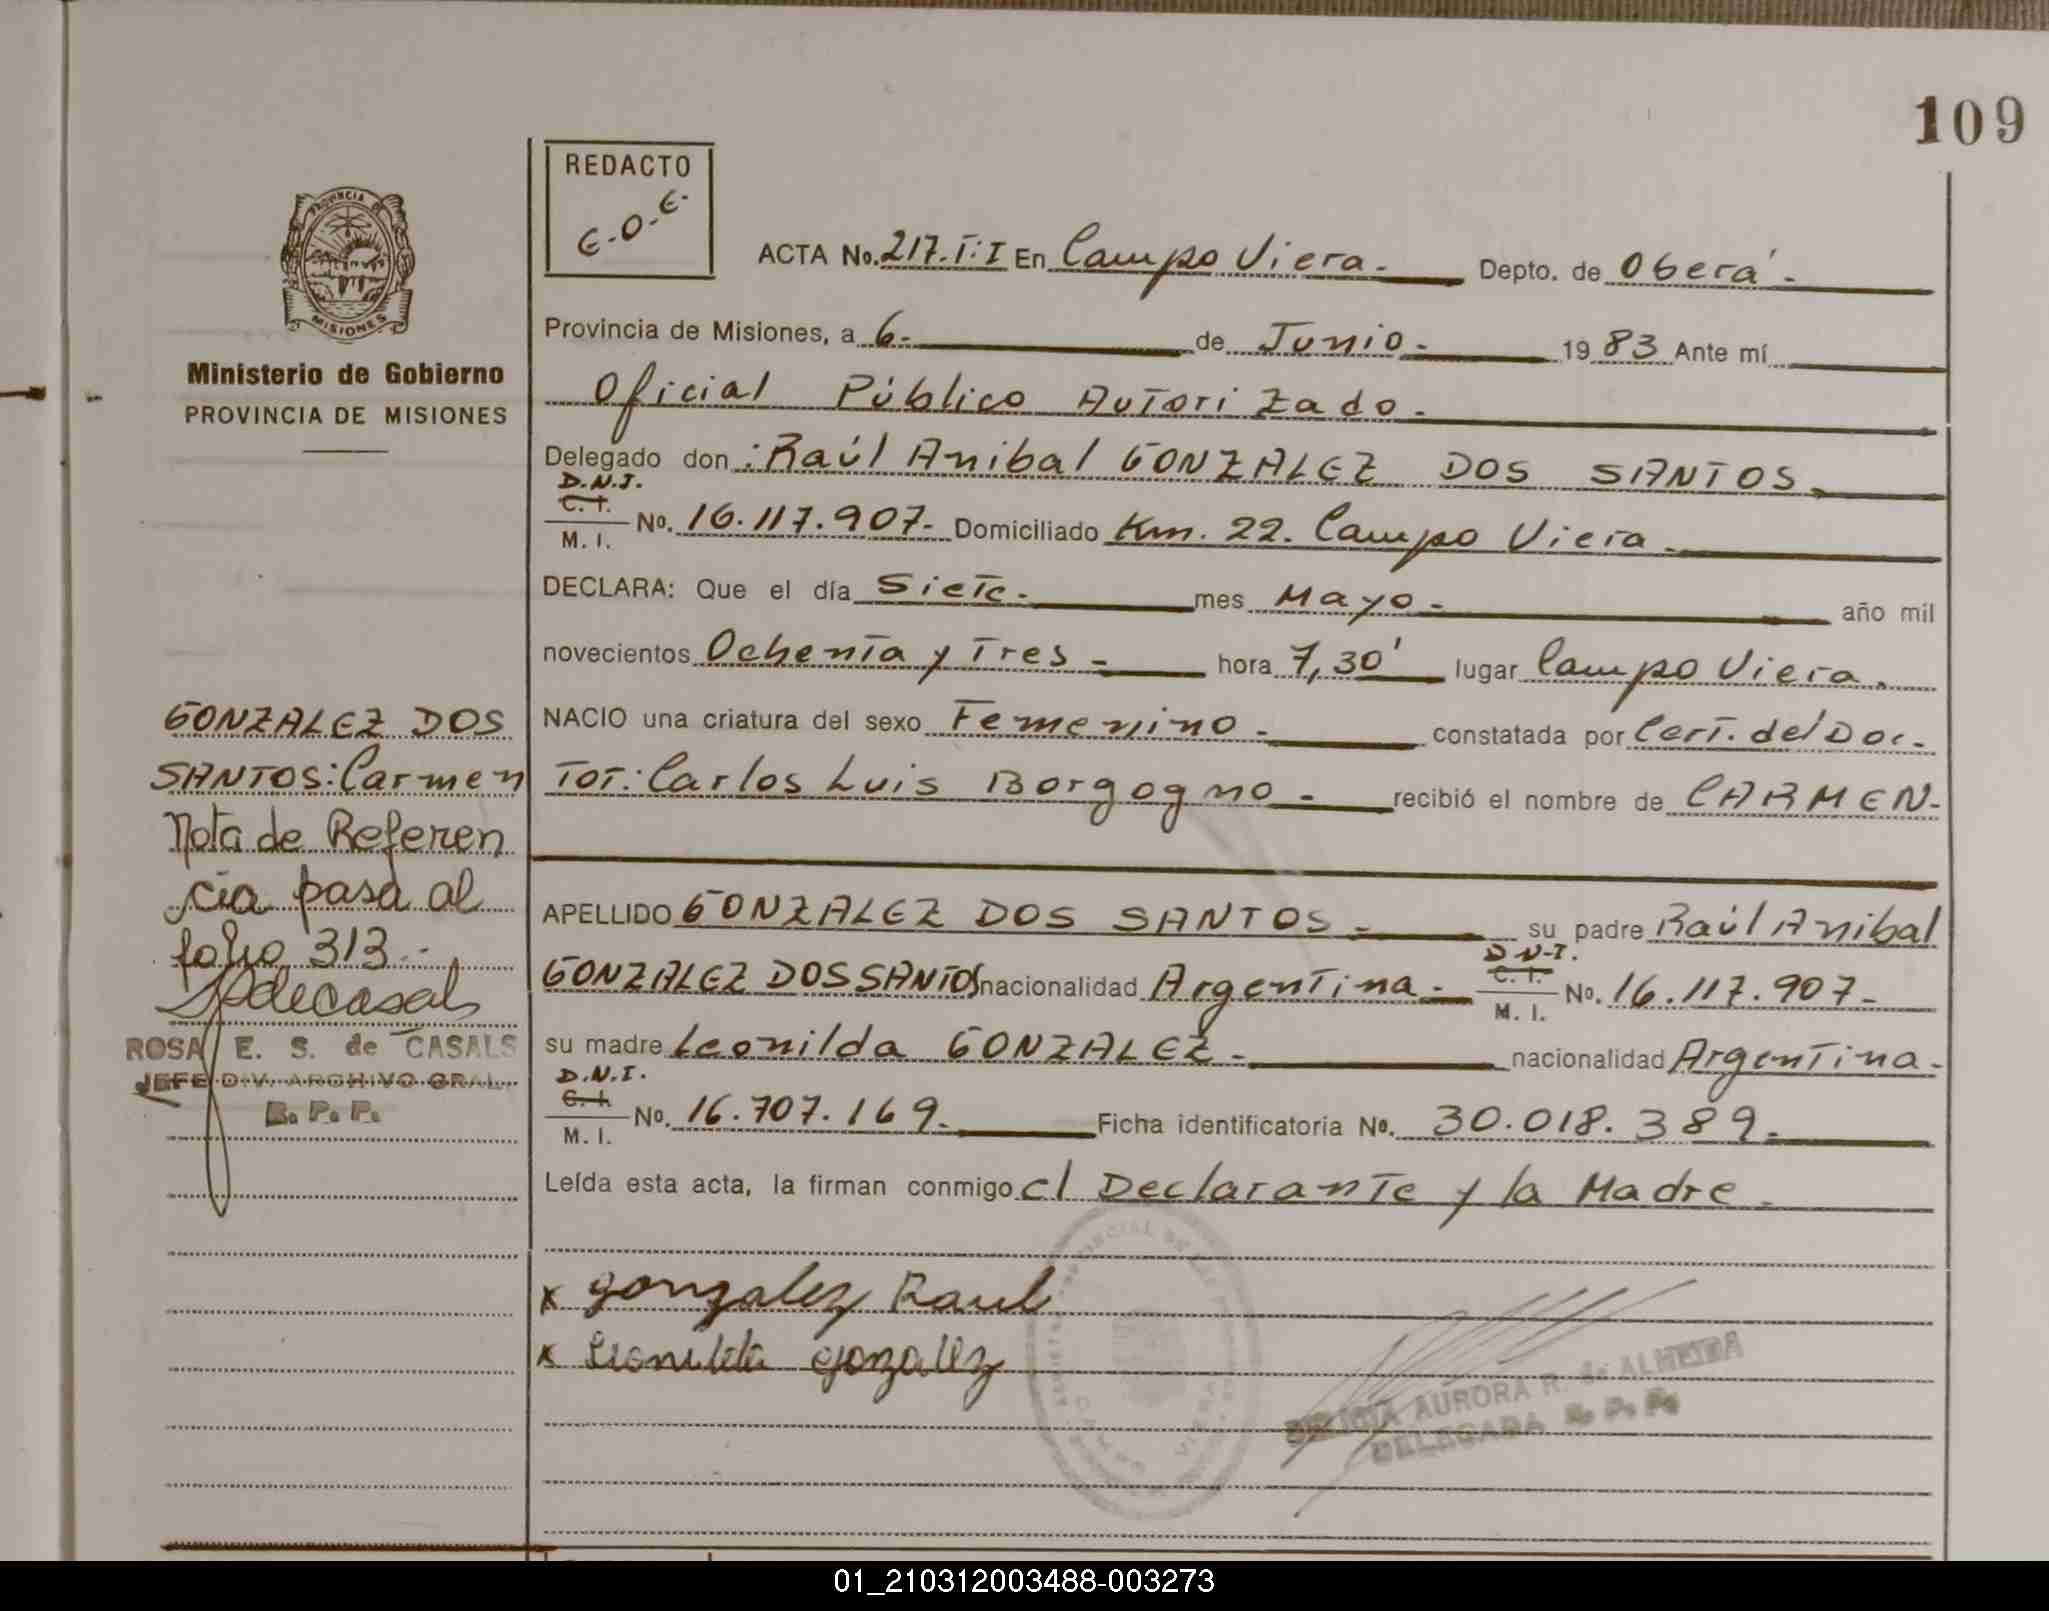 109
PROVINCIA DE
MISIONES
Ministerio de Gobierno
PROVINCIA DE MISIONES
REDACTO
E.O.E.
ACTA No. 217.T:I En Campo Viera.- Depto. de Oberá.-
Provincia de Misiones, a 6.- de Junio.- 1983 Ante mí
Oficial Público Autorizado.-
Delegado don: Raúl Anibal GONZALEZ DOS SANTOS.-
D.N.I.
C. I.
M. I. No. 16.117.907.- Domiciliado Km. 22. Campo Viera.-
DECLARA: Que el día Siete.- mes Mayo.- año mil
novecientos Ochenta y Tres.- hora 7,30' lugar Campo Viera.
NACIO una criatura del sexo Femenino.- constatada por Cert. del Doc-
tor: Carlos Luis Borgogno.- recibió el nombre de CARMEN.-
APELLIDO GONZALEZ DOS SANTOS.- su padre Raúl Anibal
GONZALEZ DOS SANTOS nacionalidad Argentina.- D.N.I. C. I. M. I. No. 16.117.907.-
su madre Leonilda GONZALEZ.- nacionalidad Argentina.-
D.N.I.
C. I.
M. I. No. 16.707.169.- Ficha identificatoria No. 30.018.389.-
Leída esta acta, la firman conmigo el Declarante y la Madre.-
x gonzalez Raul
x Leonilda gonzalez
AURORA R. de ALMEIDA
DELEGADA R. P. P.
GONZALEZ DOS
SANTOS: Carmen
Nota de Referen
cia pasa al
folio 313.-
SdeCasals
ROSA E. S. de CASALS
JEFE DIV. ARCHIVO GRAL.
R. P. P.
01_210312003488-003273